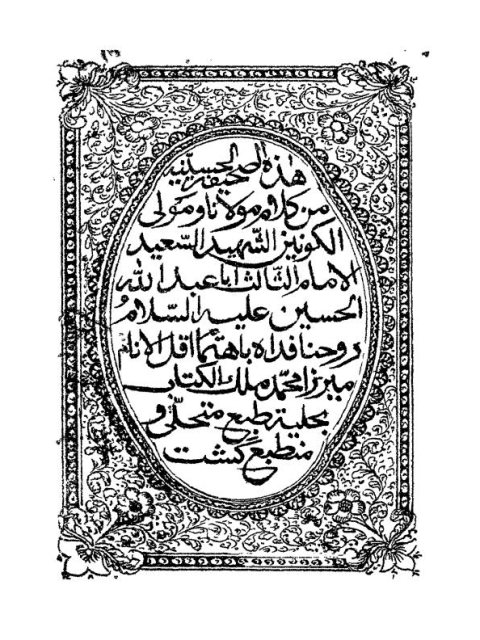 هذه الصحيفة الحسينية
من كلام مولانا و مولی
الكونين الشهيد السعيد
الامام الثالث اباعبد الله
الحسين عليه السلام
روحنا فداه باهتمام اقل الانام
ميرزا محمد ملك الكتاب
بحلية طبع متحلی و
منطبع گشت